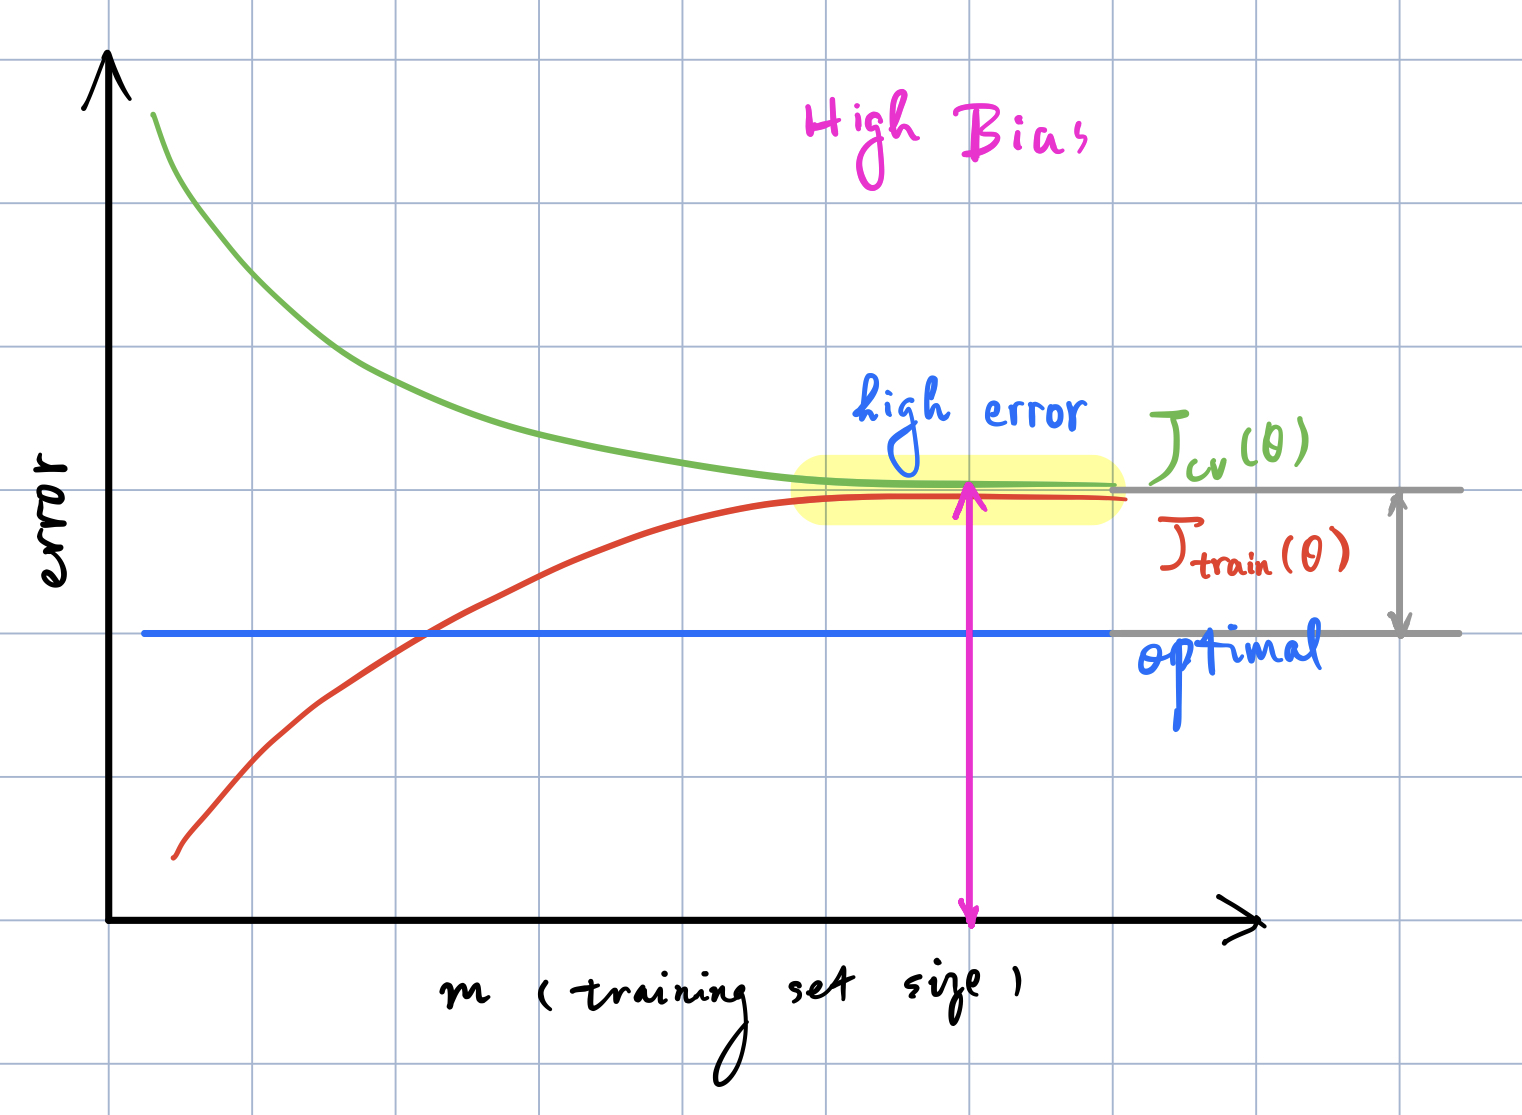 High Bias
high error
J_cv(θ)
error
J_train(θ)
optimal
m (training set size)